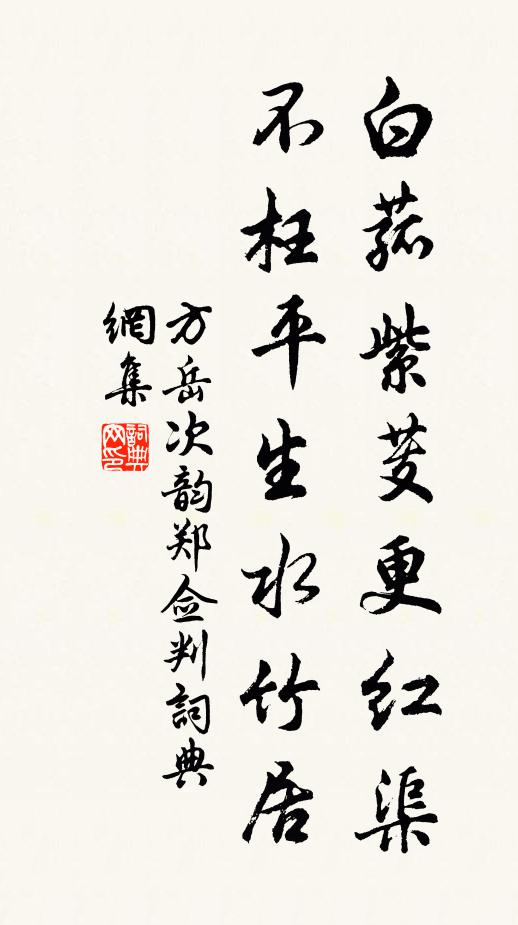 白菰紫芡更红渠
不枉平生水竹居
方岳次韵郑佥判詞典
網集
詞典网印